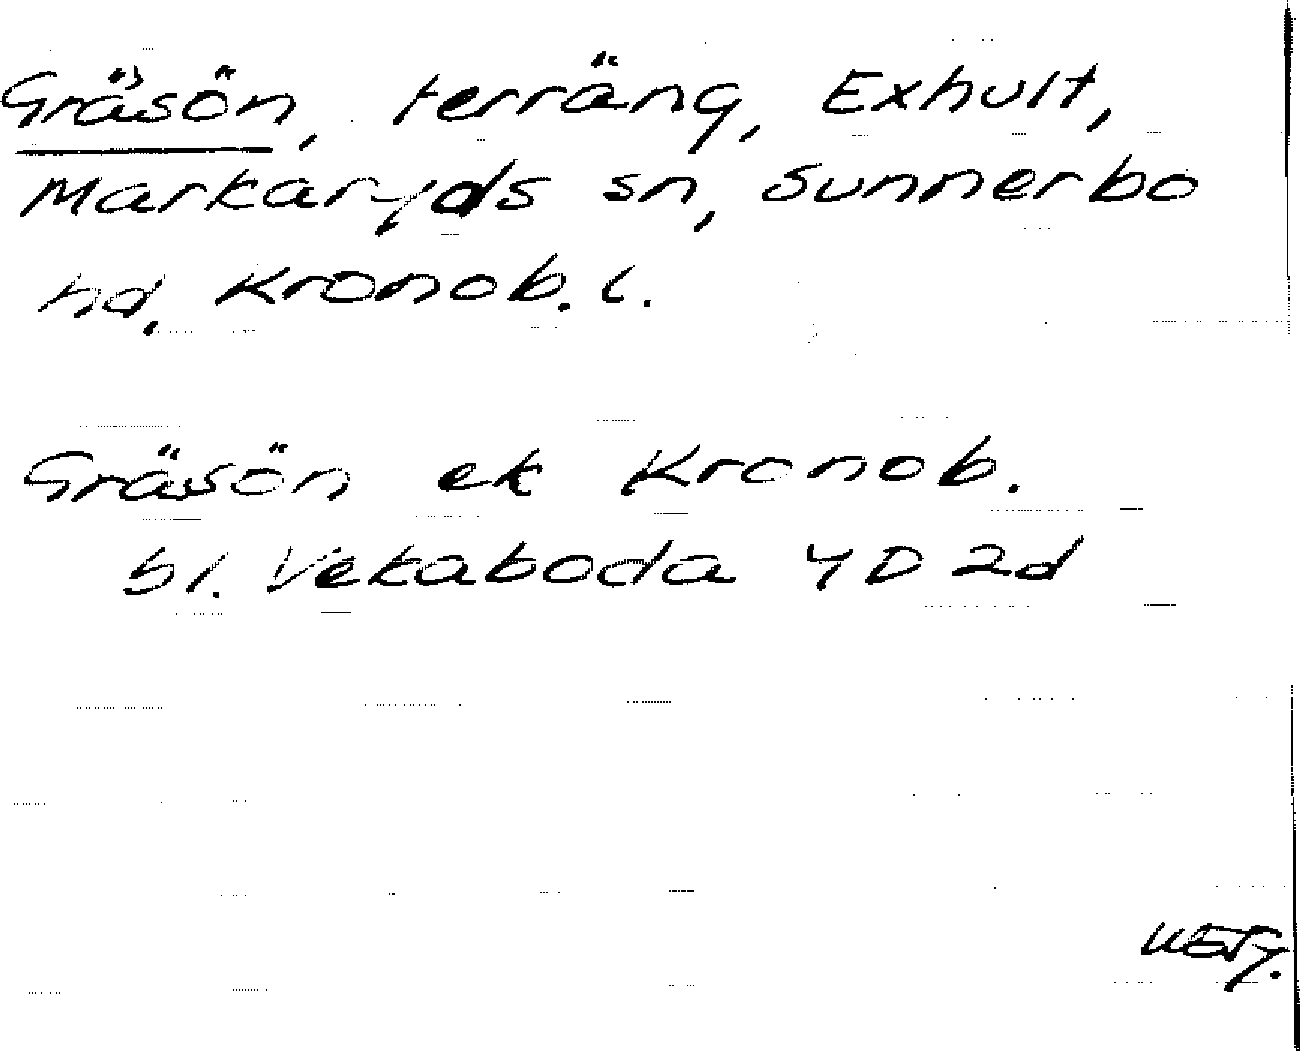 Gräsön, terräng, Exhult,
Markaryds sn, Sunnerbo
hd, Kronob. l.
Gräsön ek Kronob.
bl. Vekaboda 4D 2d